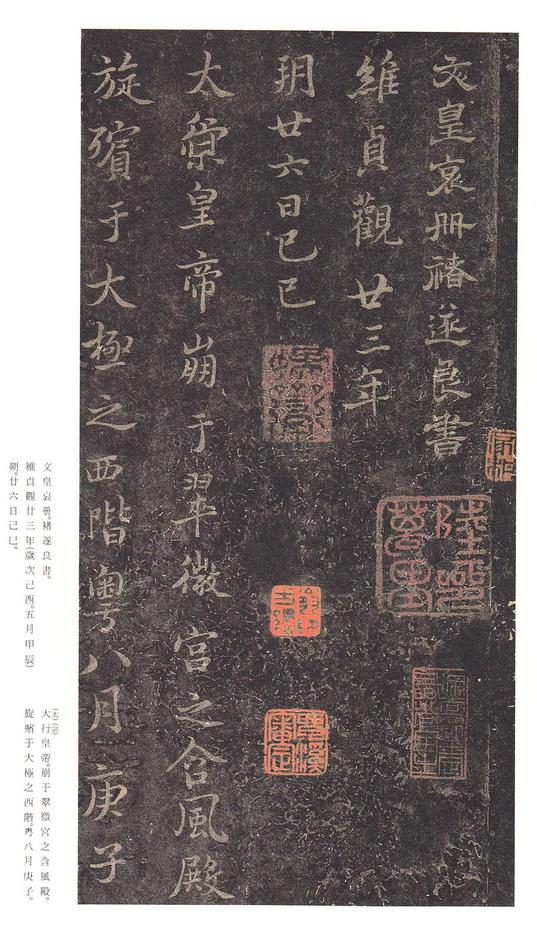 文皇哀册褚遂良書
維貞觀廿三年
朔廿六日己巳
大行皇帝崩于翠微宮之含風殿
旋殯于大極之西階粵八月庚子
文皇哀册。褚遂良書。
維貞觀廿三年(歲次己酉。五月甲辰)
朔。廿六日己巳。
大行皇帝。崩于翠微宮之含風殿。
旋殯于大極之西階。粤八月庚子。